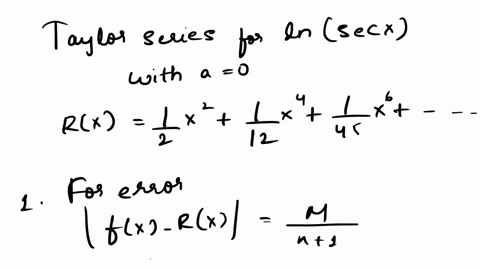 Taylor series for ln (secx)
with a = 0
R(x) = 1/2 x² + 1/12 x⁴ + 1/45 x⁶ + - - - -
1. For error
| f(x) - R(x) | = M/n+1